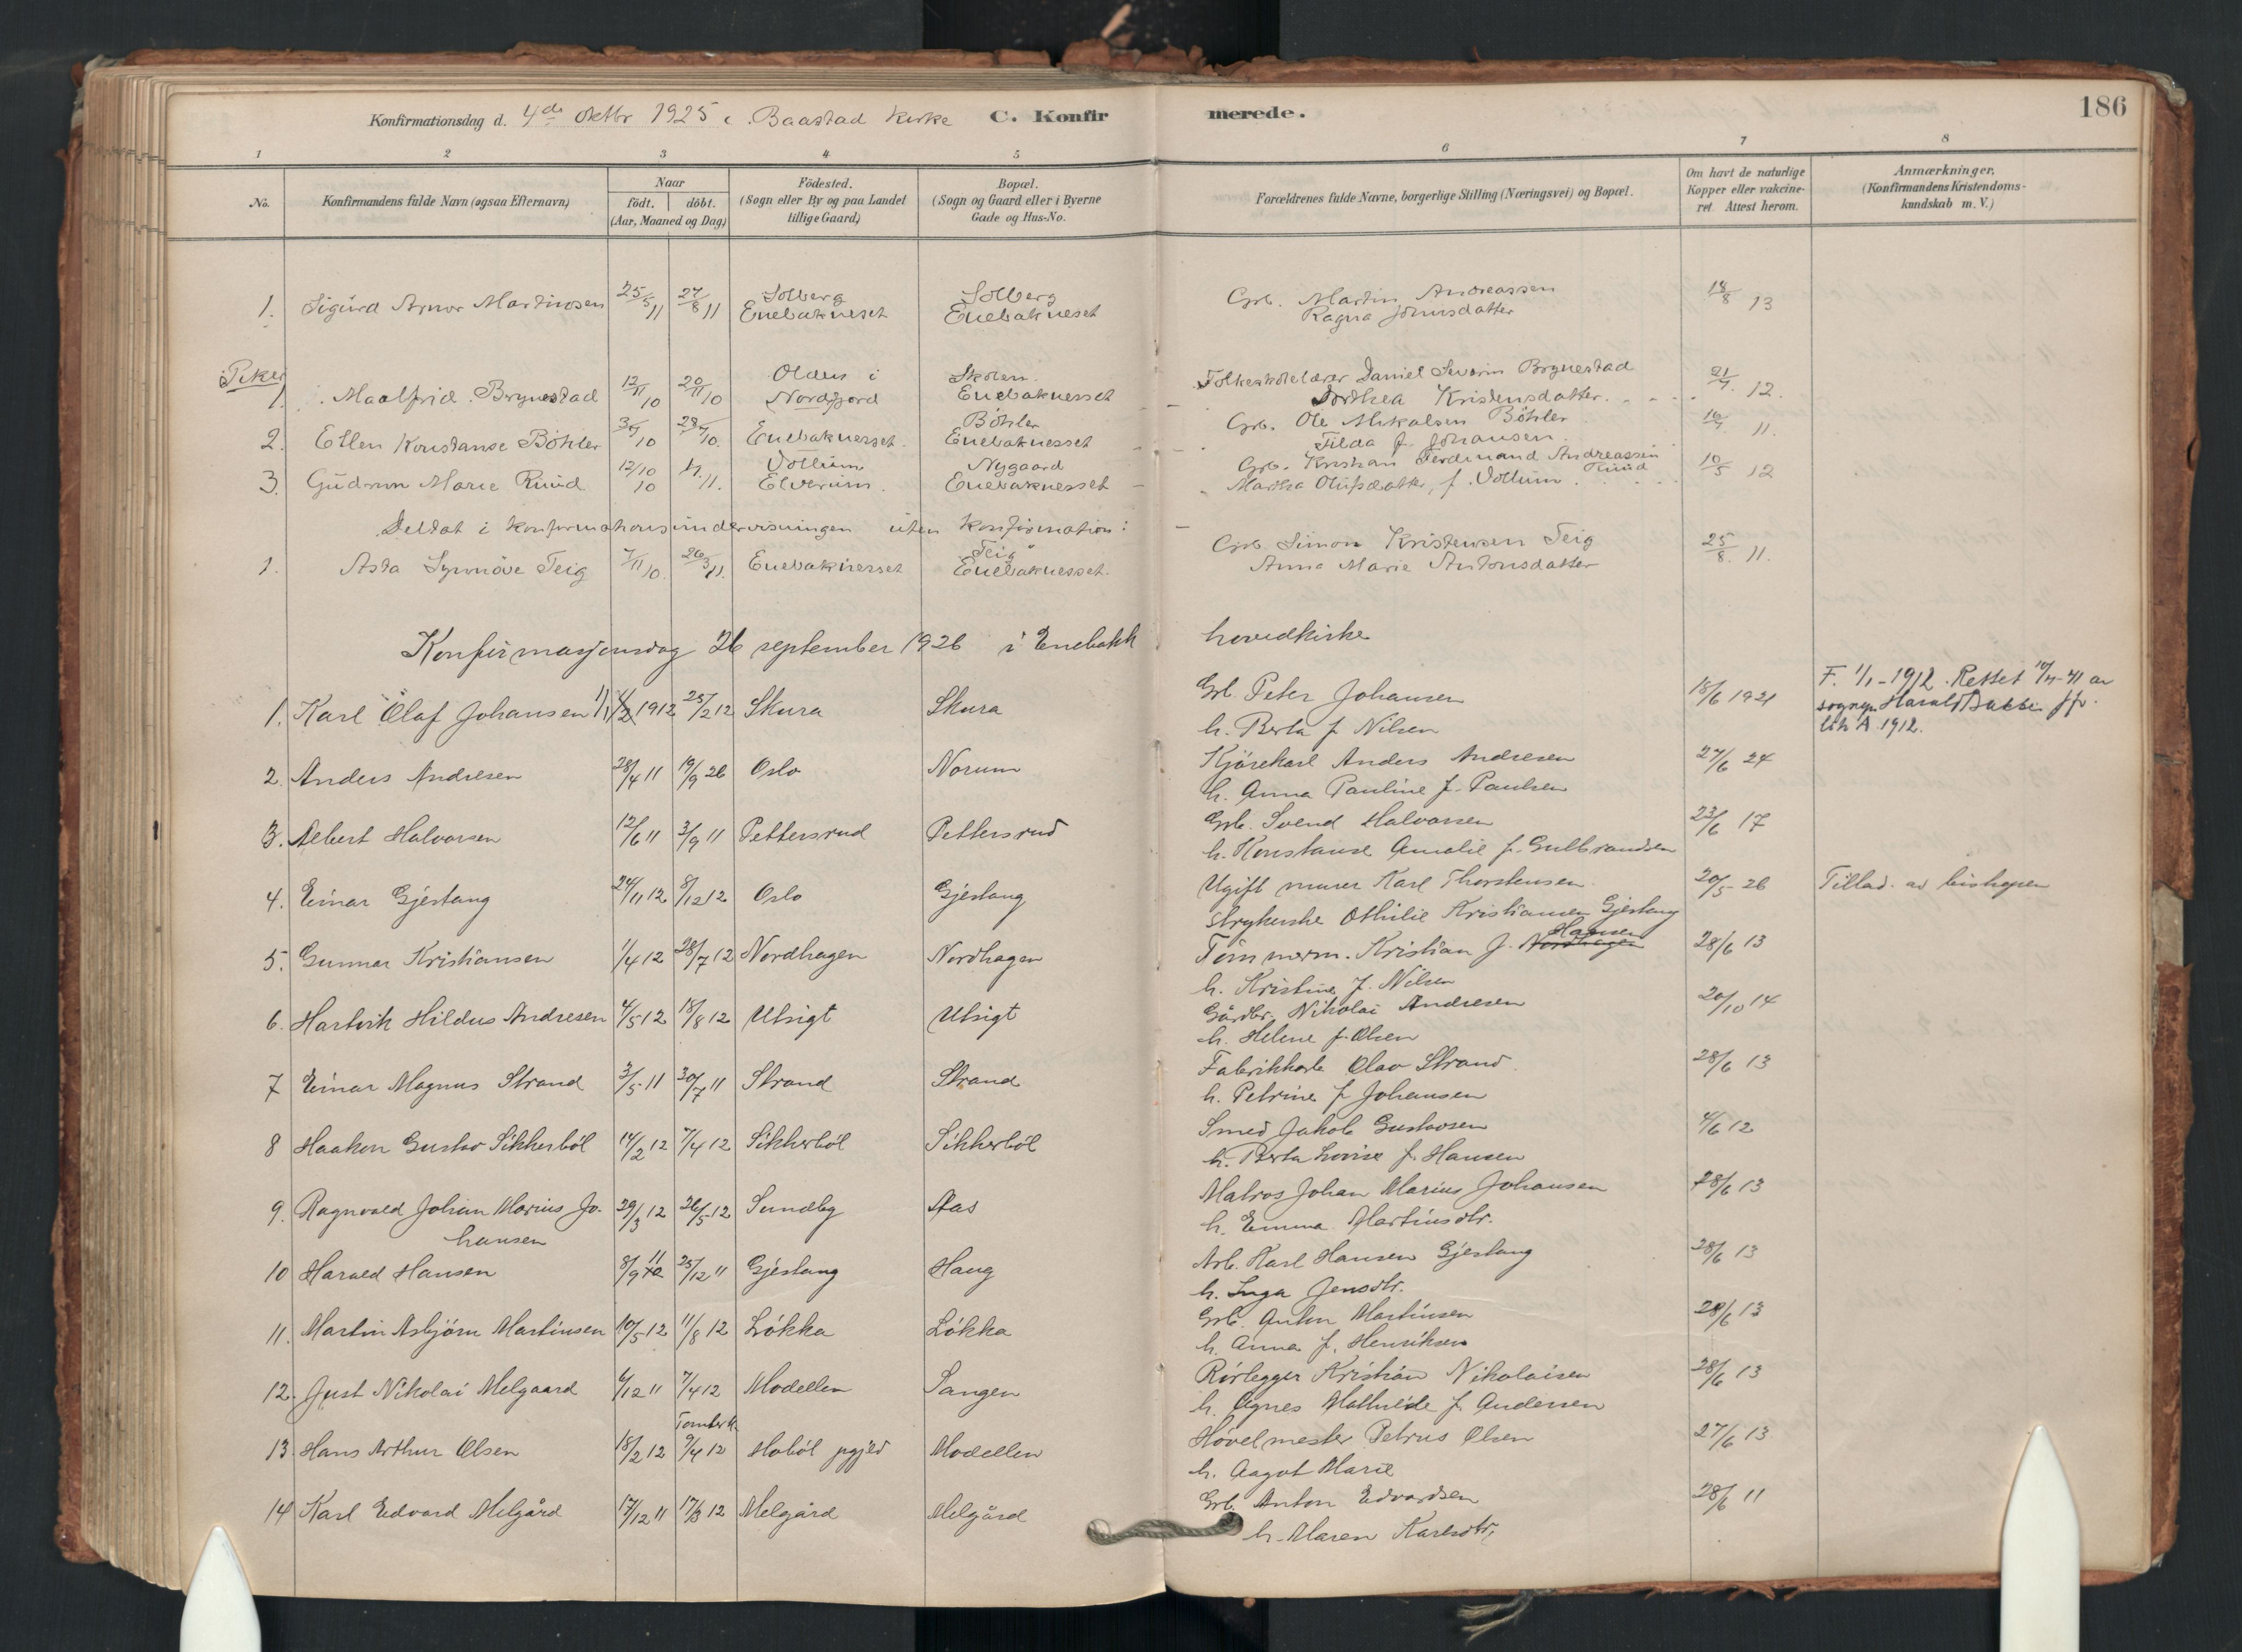 Konfirmationsdag d. 4de oktbr 1925 i Baastad Kirke C. Konfirmerede. 186
1 2 3 4 5 6 7 8
No. Konfirmandens fulde Navn (ogsaa Efternavn) Naar födt. döbt. (Aar, Maaned og Dag) Födested. (Sogn eller By og paa Landet tillige Gaard) Bopæl. (Sogn og Gaard eller i Byerne Gade og Hus-No. Forældrenes fulde Navne, borgerlige Stilling (Næringsvei) og Bopæl. Om havt de naturlige Kopper eller vakcineret. Attest herom. Anmærkninger. (Konfirmandens Kristendomskundskab m. V.)
1. Sigurd Arnor Martinsen 25/5 11 27/8 11 Solberg Enebakneset Solberg Enebakneset Grb. Martin Andreassen 18/8 13
Ragna Jörnisdatter
Piker
1. Maalfrid Brynestad 12/11 10 20/11 10 Olden i Nordfjord Skolen Enebaknesset Folkeskolelærer Daniel Severin Brynestad 21/7 12.
Dorthea Kristensdatter.
2. Ellen Konstanse Böhler 10 28/7 10. Enebaknesset Böhler Enebaknesset Grb. Ole Mikalsen Böhler 11.
Tilda f. Johansen
3. Gudrun Marie Ruud 12/10 10 11. Vollum Elverum. Nygaard Enebaknesset Grb. Kristian Ferdinand Andreassen Ruud 10/5 12
Martha Olufsdatter, f. Vollum
Deltat i konfirmationsundervisningen uten konfirmation:
1. Asta Synnöve Teig 7/11 10. 26/3 11. Enebaknesset "Teig" Enebaknesset. Grb. Simon Kristensen Teig 25/8. 11.
Anna Marie Antonsdatter
Konfirmasjonsdag 26 september 1926 i Enebakk hovedkirke
1. Karl Olaf Johansen 1/1 1/2 1912 25/2 12 Skura Skura Grb. Peter Johansen 18/6 1921 F. 1/1-1912. Rettet 41 av
h. Berta f. Nilsen sogнepr. Harald Bakke jfr.
litr A 1912.
2. Anders Andresen 28/4 11 19/9 26 Oslo Norum Kjörekarl Anders Andresen 27/6 24
h. Anna Pauline f. Paulsen
3. Albert Halvorsen 12/6 11 3/9 11 Pettersrud Pettersrud Grb. Svend Halvorsen 23/6 17
h. Konstanse Amalie f. Gulbrandsen
4. Einar Gjestang 24/11 12 8/12 12 Oslo Gjestang Ugift murer Karl Thorstensen 20/5-26 Tillad. av biskopen
strykerske Othilie Kristiansen Gjestang
5. Gunnar Kristiansen 1/4 12 28/7 12 Nordhagen Nordhagen Tömmerm. Kristian J. Nordhagen Hansen 28/6 13
h. Kristine f. Nilsen
6. Hartvik Hildus Andresen 4/5 12 18/8 12 Utsigt Utsigt Gårdbr. Nikolai Andresen 20/10 14
h. Helene f. Olsen
7 Einar Magnus Strand 3/5 11 30/7 11 Strand Strand Fabrikkarb. Olav Strand 28/6 13
h. Petrine f. Johansen
8 Haakon Gustav Sikkerböl 14/2 12 7/4 12 Sikkerböl Sikkerböl Smed Jakob Gustavsen 4/6 12
h. Berta Lovise f. Hansen
9. Ragnvald Johan Marius Jo- 29/3 12 26/5-12 Sundby Aas Matros Johan Marius Johansen 28/6 13
hansen h. Emma Martinsdtr.
10 Harald Hansen 8/9 12 11 25/12 11 Gjestang Haug Arb. Karl Hansen Gjestang 28/6 13
h. Inga Jensdtr.
11. Martin Asbjörn Martinsen 10/5 12 11/8 12 Lökka Lökka Grb. Anton Martinsen 28/6 13
h. Anna f. Henriksen
12. Just Nikolai Melgaard 4/12 11 7/4 12 Modellen Tangen Rörlegger Kristian Nikolaisen 28/6 13
h. Agnes Mathilde f. Andersen
13. Hans Arthur Olsen 18/2 12 Tomter k. 9/4 12 Hoböl pgjeld Modellen Hövelmester Petrus Olsen 27/6 13
h. Aagot Marie
14 Karl Edvard Melgård 17/12 11 17/3 12 Melgård Melgård Grb. Anton Edvardsen 28/6 11
h. Maren Karlsdtr.